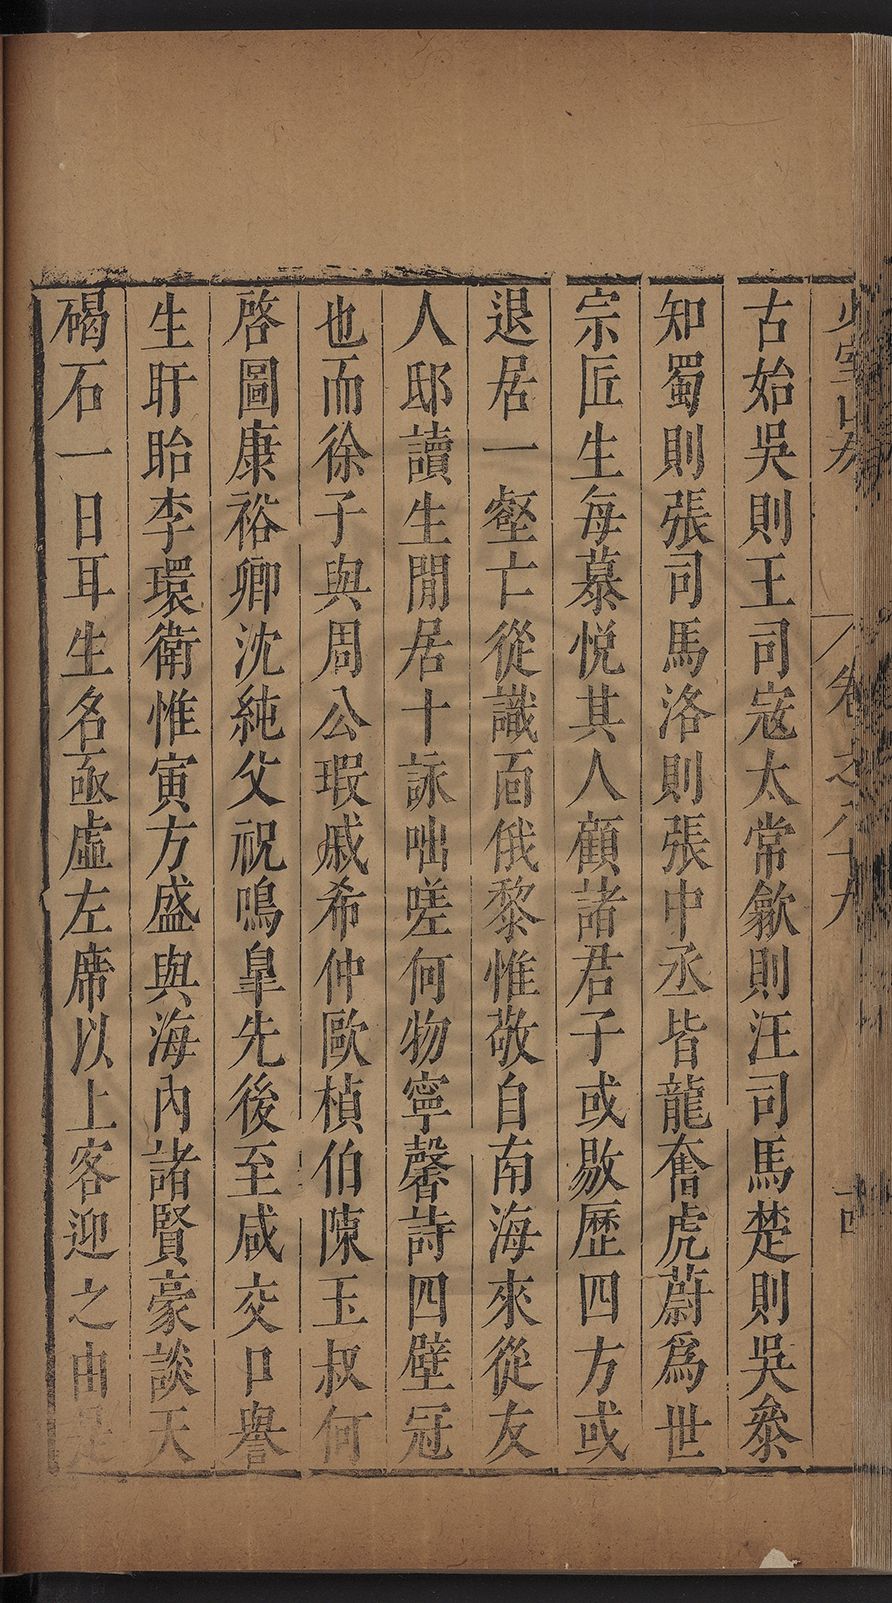 少室山房 卷之八十九 十四
古始吳則王司寇太常歙則汪司馬楚則吳參
知蜀則張司馬洛則張中丞皆龍奮虎蔚爲世
宗匠生每慕悅其人顧諸君子或敭歷四方或
退居一壑亡從識面俄黎惟敬自南海來從友
人邸讀生閒居十詠咄嗟何物寧馨詩四壁冠
也而徐子與周公瑕戚希仲歐楨伯陳玉叔何
啓圖康裕卿沈純父祝鳴皐先後至咸交口譽
生盱眙李環衛惟寅方盛與海內諸賢豪談天
碣石一日耳生名亟虛左席以上客迎之由是